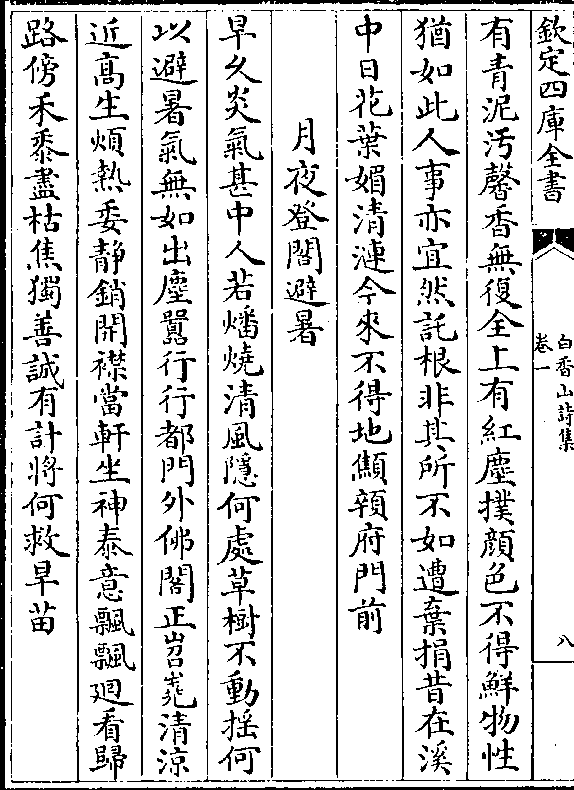 欽定四庫全書
白香山詩集
卷一
八
有青泥汚馨香無復全上有紅塵撲顔色不得鮮物性
猶如此人事亦宜然託根非其所不如遭棄捐昔在溪
中日花葉媚清漣今來不得地顦顇府門前
月夜登閣避暑
旱久炎氣甚中人若燔燒清風隱何處草樹不動揺何
以避暑氣無如出塵囂行行都門外佛閣正岧嶤清涼
近髙生煩熱委静銷開襟當軒坐神泰意飄飄廻看歸
路傍禾黍盡枯焦獨善誠有計將何救旱苗